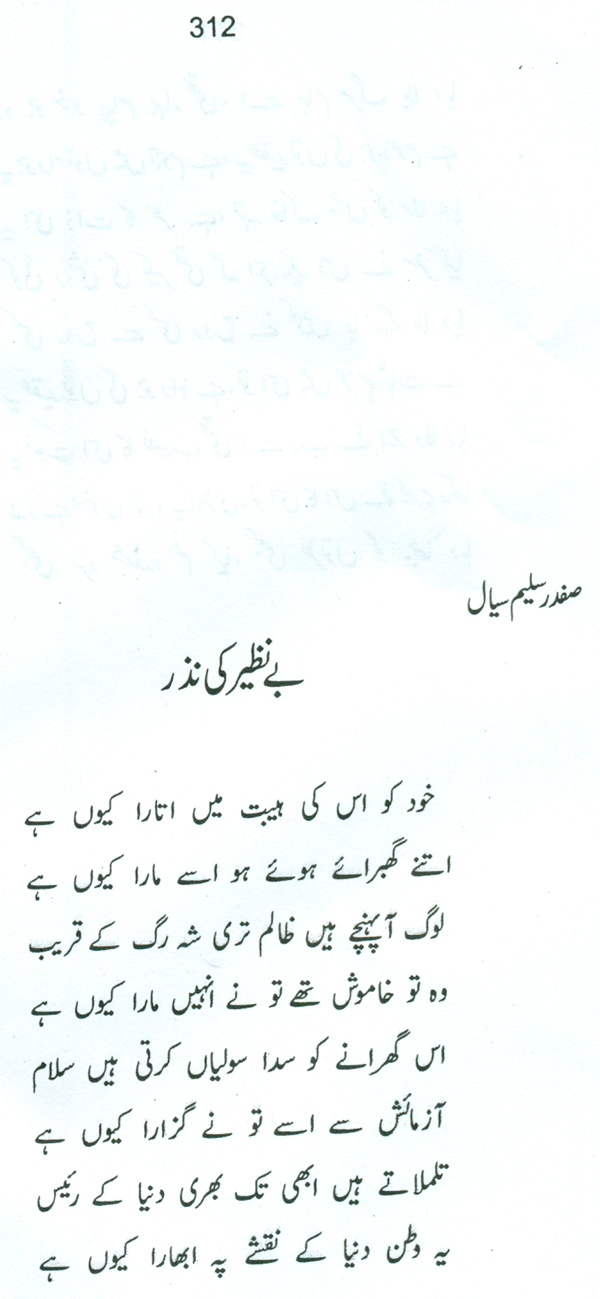 312
صفدر سلیم سیال
بے نظیر کی نذر
خود کو اس کی ہیبت میں اتارا کیوں ہے
اتنے گھبرائے ہوئے ہو اسے مارا کیوں ہے
لوگ آ پہنچے ہیں ظالم تری شہ رگ کے قریب
وہ تو خاموش تھے تو نے انہیں مارا کیوں ہے
اس گھرانے کو سدا سولیاں کرتی ہیں سلام
آزمائش سے اسے تو نے گزارا کیوں ہے
تلملاتے ہیں ابھی تک بھری دنیا کے رئیس
یہ وطن دنیا کے نقشے پہ ابھارا کیوں ہے